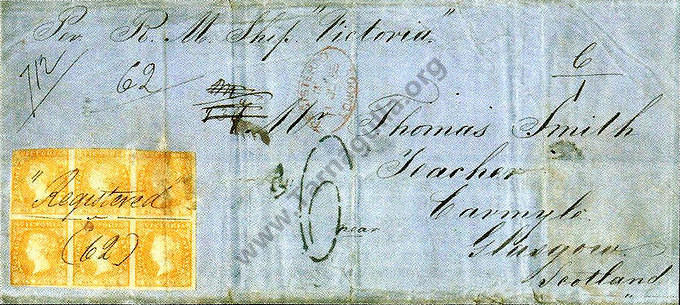 Per R. M. Ship "Victoria"
712/
62
C
1
Mr Thomas Smith
Teacher
near
Carmyle
Glasgow
Scotland
"Registered"
(62)
www.Tarnagulla.org